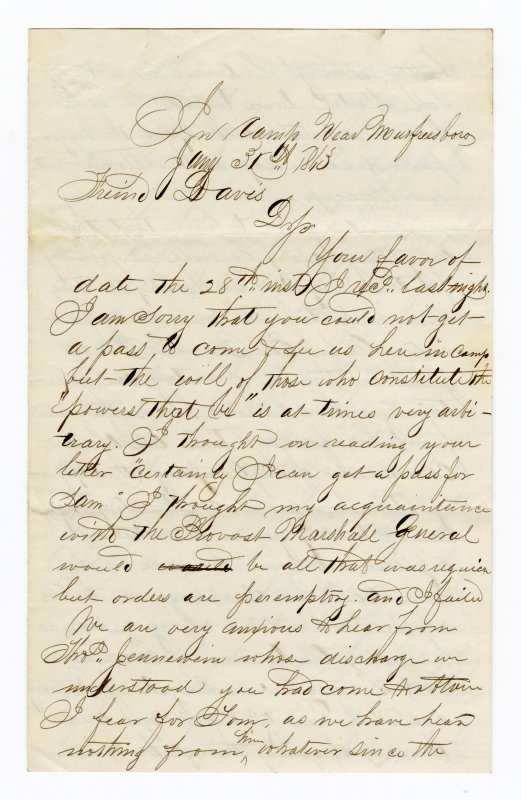 In Camp Near Murfreesboro
Jany 31st 1863
Freind Davis
Dr Sir
Your favor of
date the 28th inst I recd. last night.
I am sorry that you could not get
a pass to come & see us here in camp
but the will of those who constitute the
"powers that be" is at times very arbi-
trary. I thought on reading your
letter "certainly I can get a pass for
Sam" I thought my acquaintance
with the Provost Marshall General
would be all that was required
but orders are peremptory. and I failed
We are very anxious to hear from
Thos. Jennewein whose discharge we
understood you had come to obtain
I fear for Tom, as we have hear
nothing from him whatever since the